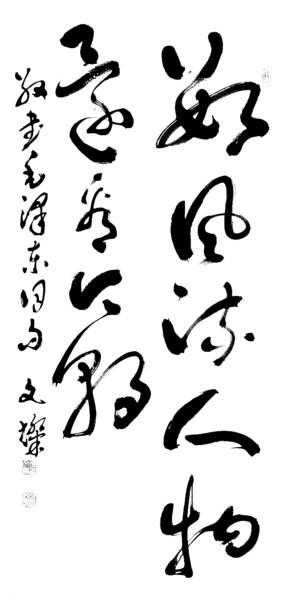 数风流人物
还看今朝
敬书毛泽东词句 文灿